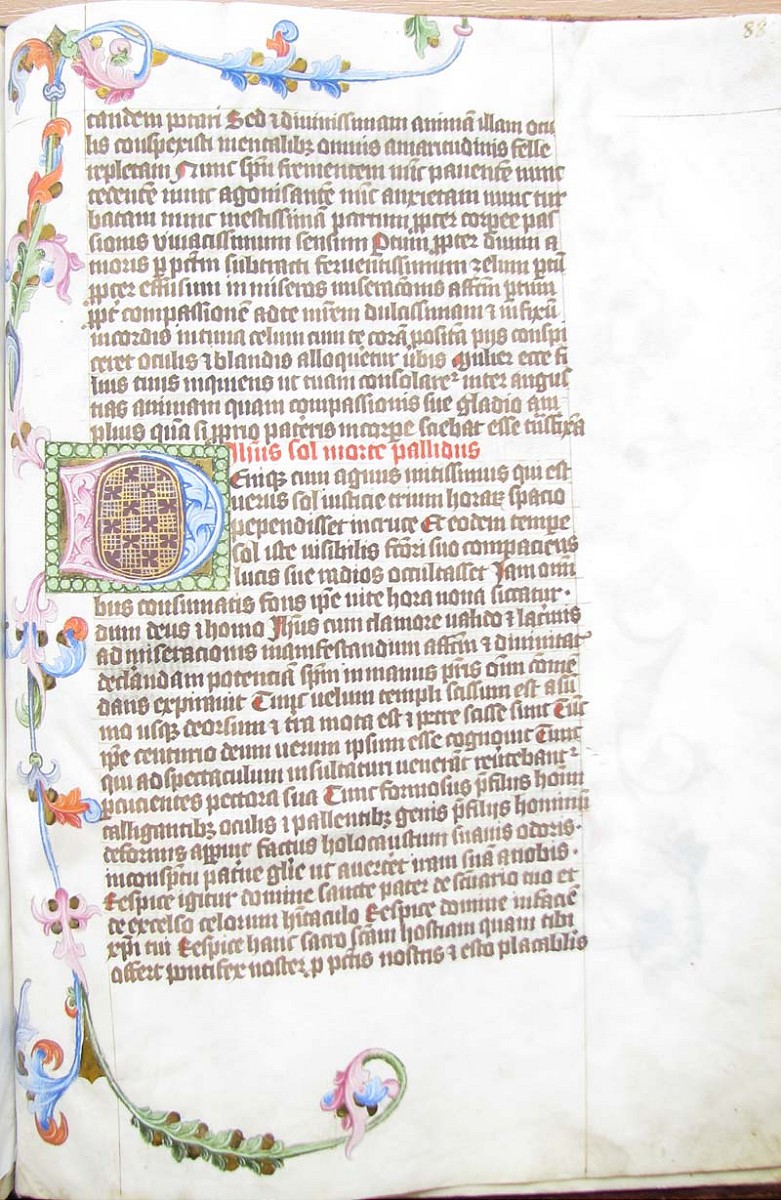 88
tandem potari Sed ⁊ diuinissimam animā illam ocu
lis conspexisti mentalibꝫ omnis amaritudinis felle
repletam Nunc spm̄ frementem nūc pauentē nunc
tedentē nunc agonisantē nūc anxietam nunc tur
batam nunc mestissimā partim ꝓpter corpee pas
sionis viuacissimum sensum Ptim ꝓpter diuini a
moris
feruentissimum zelum
ꝓpter effusum in miseros miseracōnis affcm̄ ptim
compassionē ad te mrēm dulcissimam
in cordis intima celum cum te corā posita pijs conspi
ceret oculis ⁊ blandis alloquetur ūbis Mulier ecce fi
lius tuus inquiens ut tuam consolaret inter angus
tias animam quam compassionis sue gladio am
plius quā si ꝓprio pateris in corpe sciebat esse tūsfixā
Ihūs sol morte pallidus
Deniqꝫ cum agnus mitissimus qui est
uerus sol iusticie trium horaꝝ spacio
pependisset in cruce Et eodem tempe
sol iste uisibilis fcōri suo compaciens
lucis sue radios occultasset Jam omī
bus consumatis fons ip̄e uite hora nona siccatur ·
dum deus ⁊ homo Jhūs cum clamore ualido ⁊ lacrīis
ad miseracionis manifestandum affcm̄ ⁊ diuinitatꝭ
declandam potenciā spm̄ in manus pr̄is cōmē
dans expirauit Tunc uelum templi scissum est a sū
mo usqꝫ deorsum ⁊ tra mota est ⁊ petre scisse sunt Tūc
ip̄e centurio deum uerum ipsum esse cognouit Tunc
qui ad spectaculum insultaturi uenerāt reūtebant
pcucientes pectora sua Tunc formosus p̄ filijs homī
calligantibꝫ oculis ⁊ pallentibꝫ genis p̄ filijs hominū
deformis apparuit factus holocaustum suauis odoris ·
in conspctu paterne glīe ut auertēt iram suā a nobis ·
Respice igitur domine sancte pater de scūario tuo et
de excelso celorum hītaculo Respice domine in faciē
xp̄i tui Respice hanc sacro scām hostiam quam tibi
offert pontifex noster ꝓ pctis nostris ⁊ esto placabilis